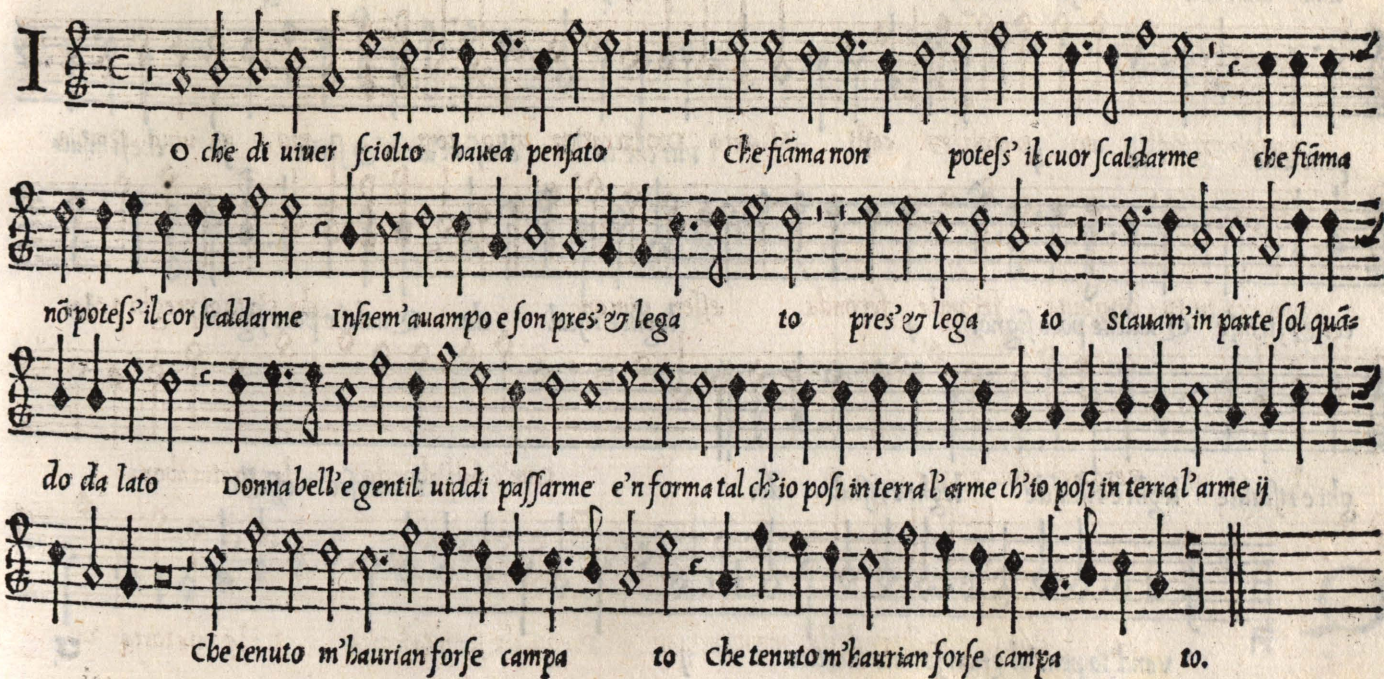 IO che di uiuer sciolto hauea pensato che fiāma non potess' il cuor scaldarme che fiāma
nō potess' il cor scaldarme Insiem' auampo e son pres' & lega to pres' & lega to Stauam' in parte sol quā=
do da lato Donna bell' e gentil uiddi passarme e'n forma tal ch'io posi in terra l'arme ch'io posi in terra l'arme ij
che tenuto m'haurian forse campa to Che tenuto m'haurian forse campa to.